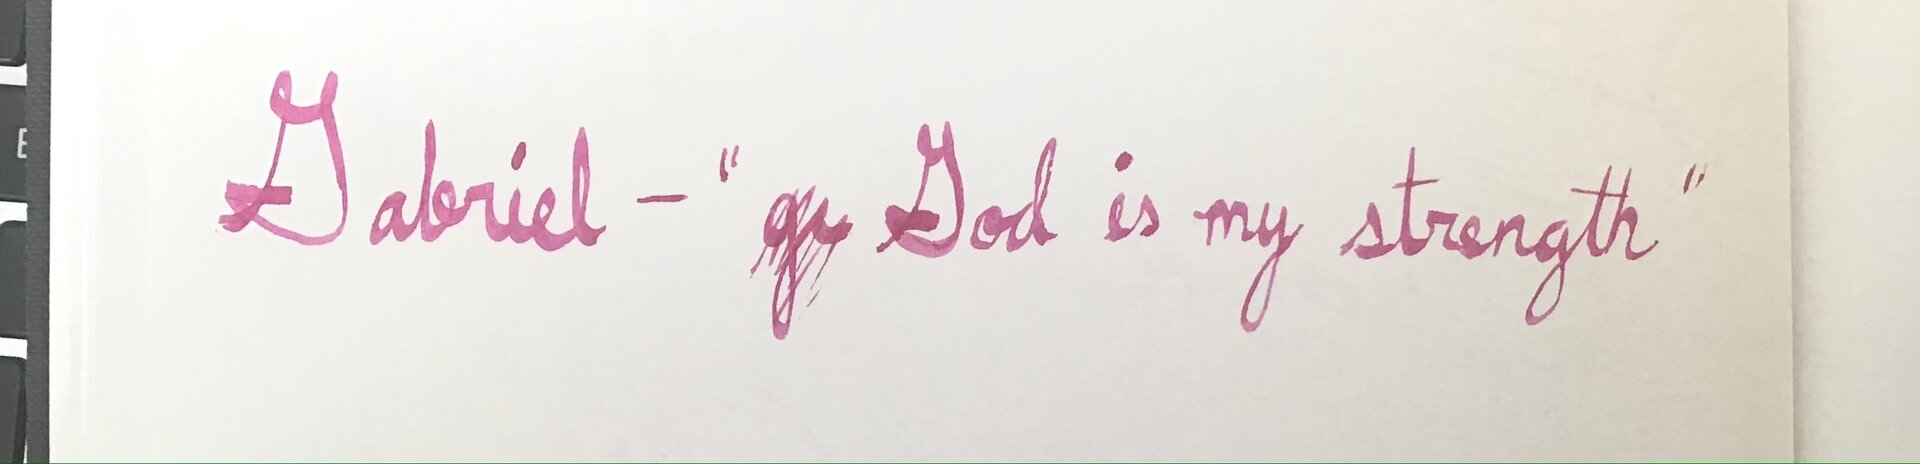 Gabriel – "God is my strength"
E